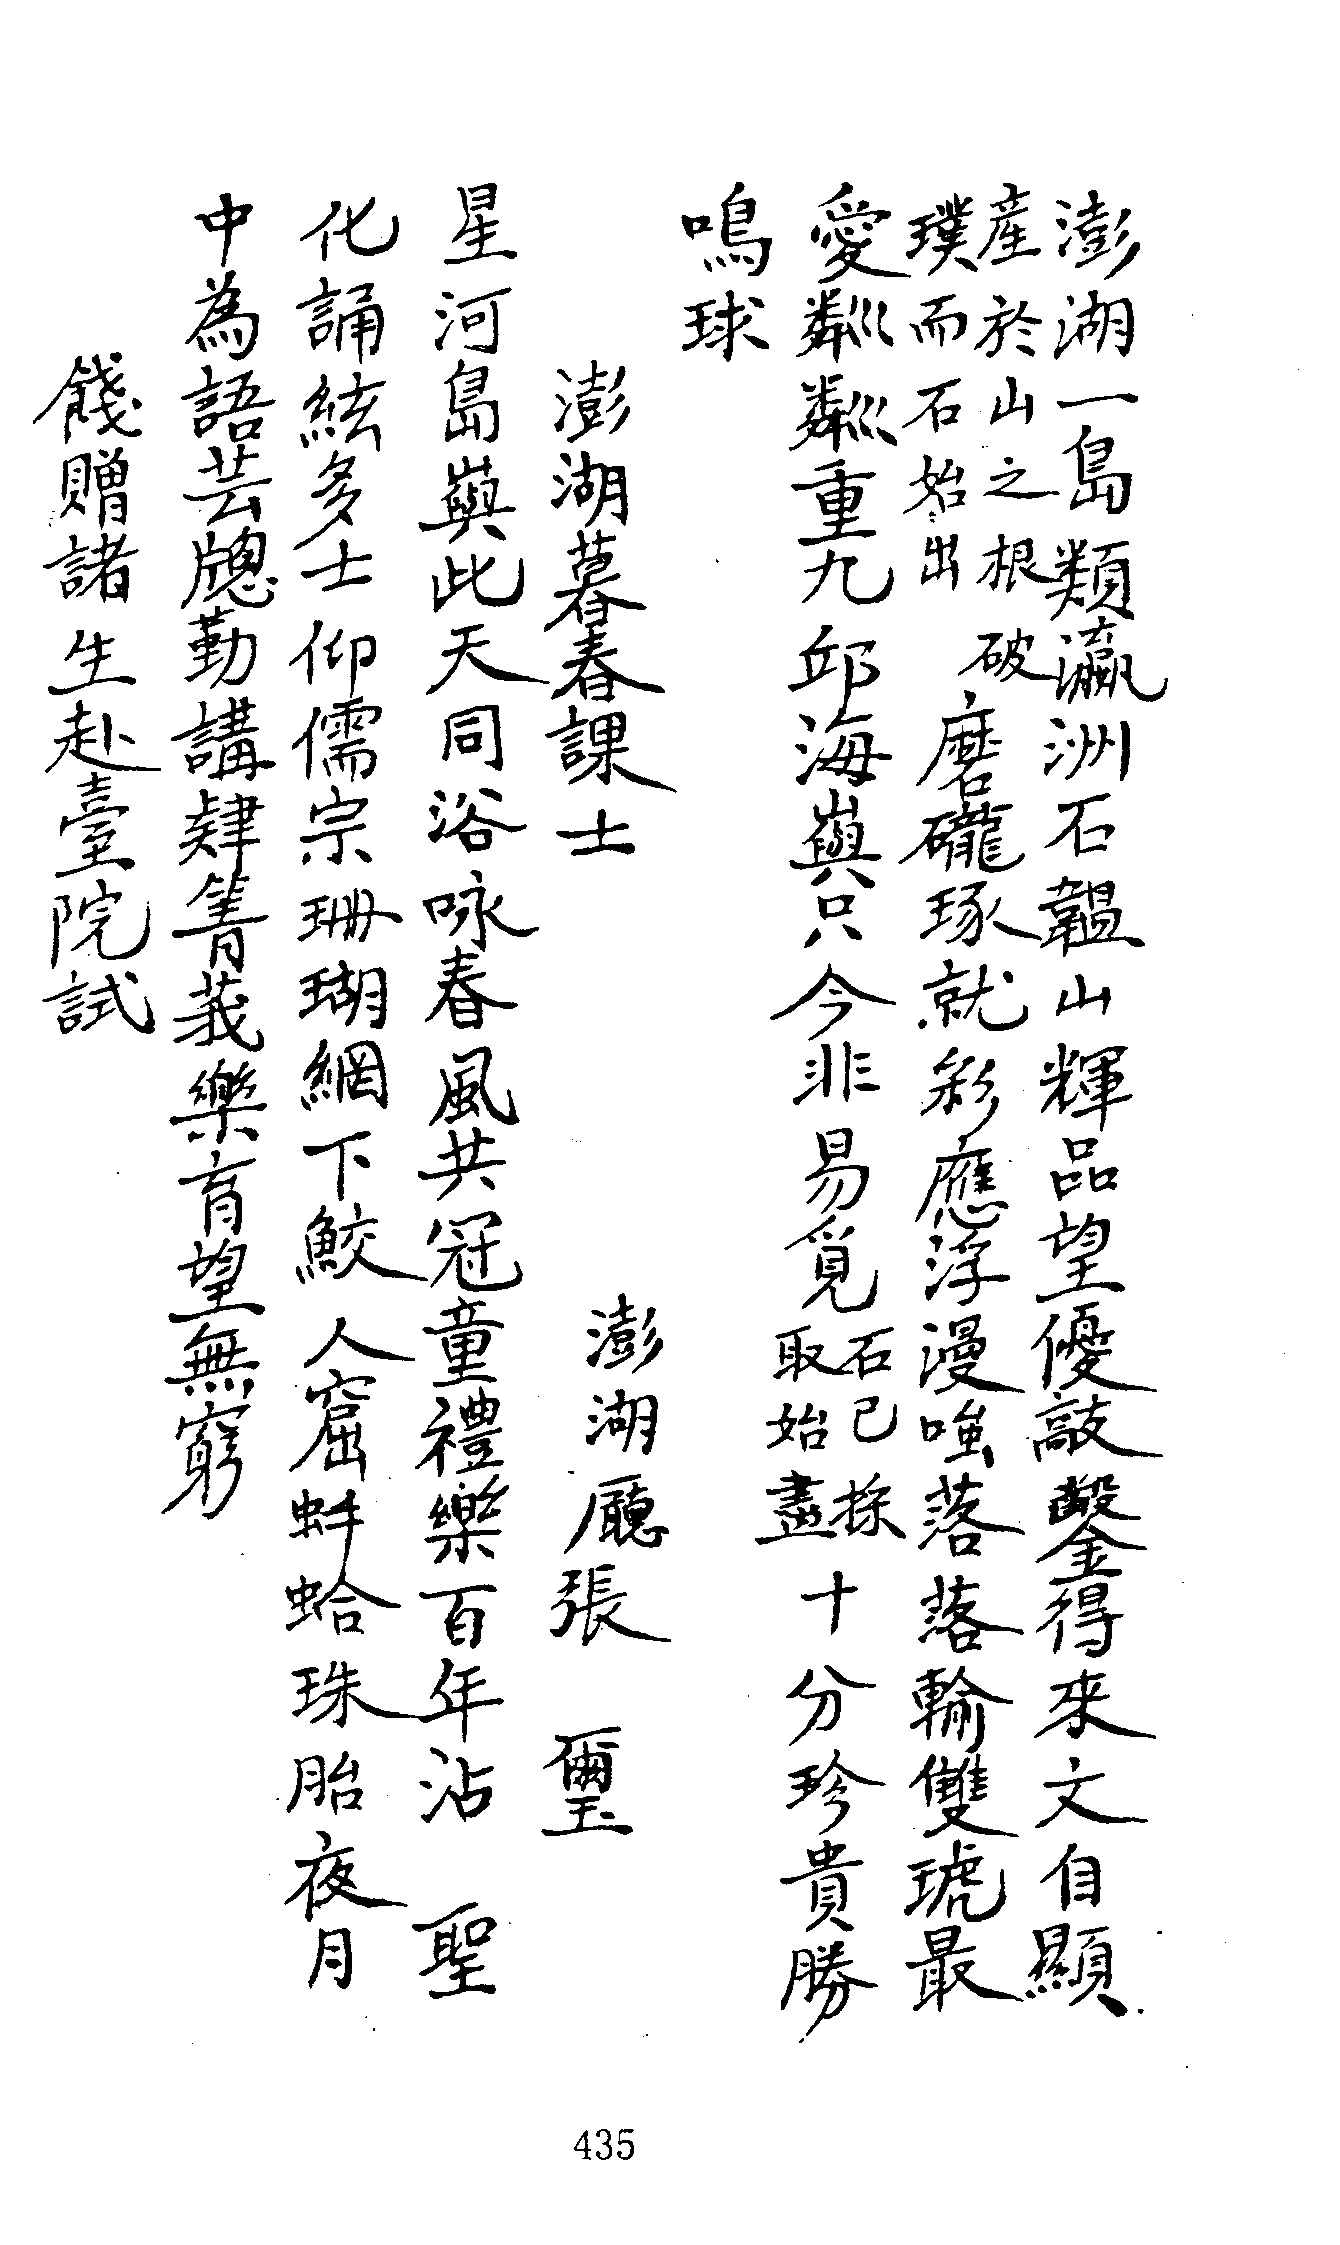 澎湖一島類瀛洲石韞山輝品望優敲鑿得來文自顯
產於山之根破
璞而石始出
磨礲琢就彩應浮漫嗤落落輸雙琥最
愛粼粼重九邱海嶼只今非易覓
石已採
取始盡
十分珍貴勝
鳴球
澎湖暮春課士 澎湖廳張 璽
星河島嶼此天同浴咏春風共冠童禮樂百年沾 聖
化誦絃多士仰儒宗珊瑚網下鮫人窟蚌蛤珠胎夜月
中為語芸牕勤講肄菁莪樂育望無窮
餞贈諸生赴臺院試
435